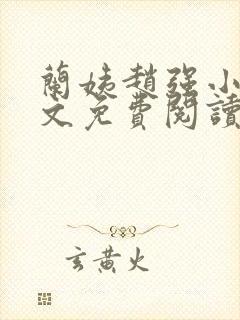 蘭姨趙強小
文免費閱讀
玄黃火